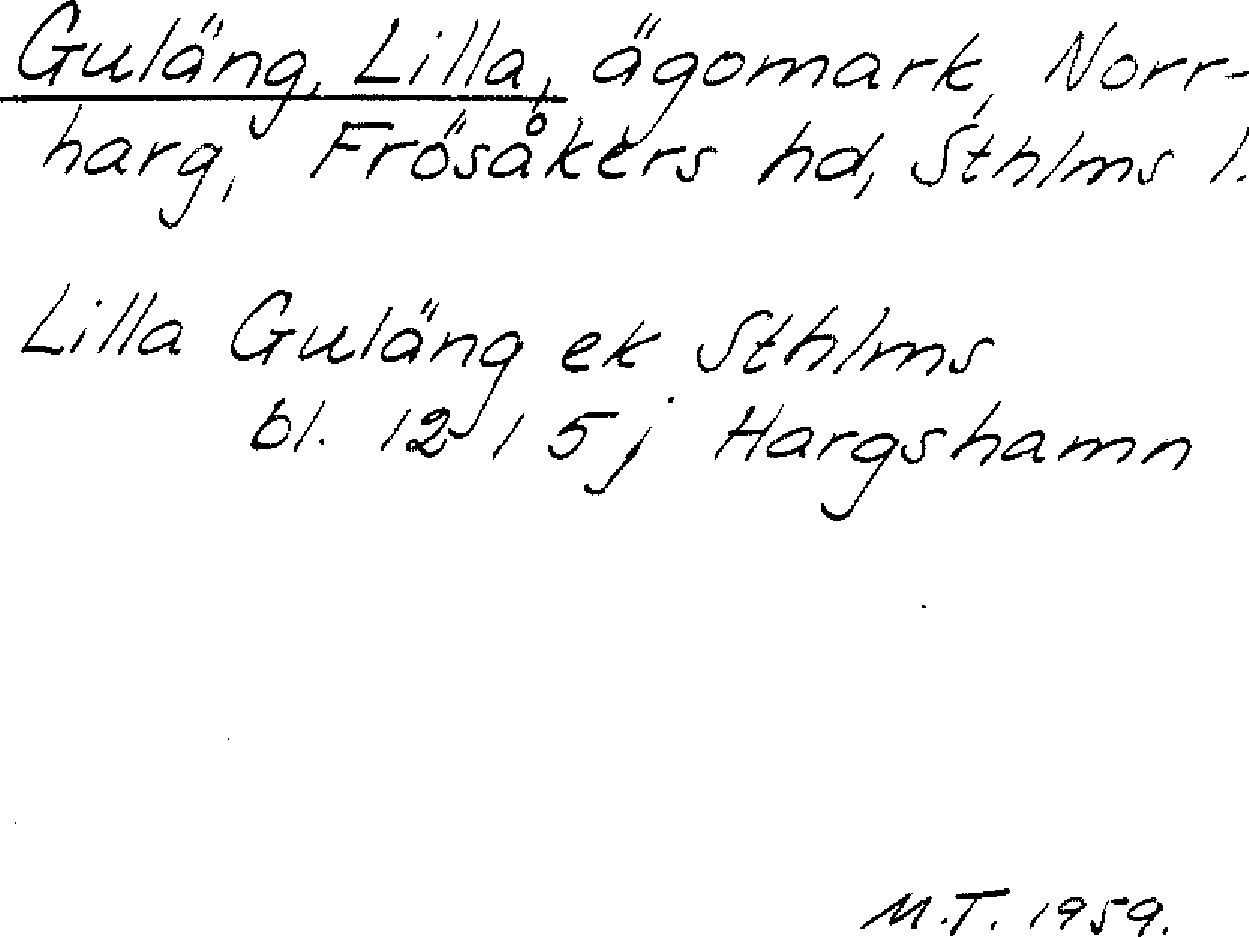 Guläng, Lilla, ägomark, Norr-
harg, Frösåkers hd, Sthlms l.
Lilla Guläng ek Sthlms
bl. 12 I 5 j Hargshamn
M.T. 1959.